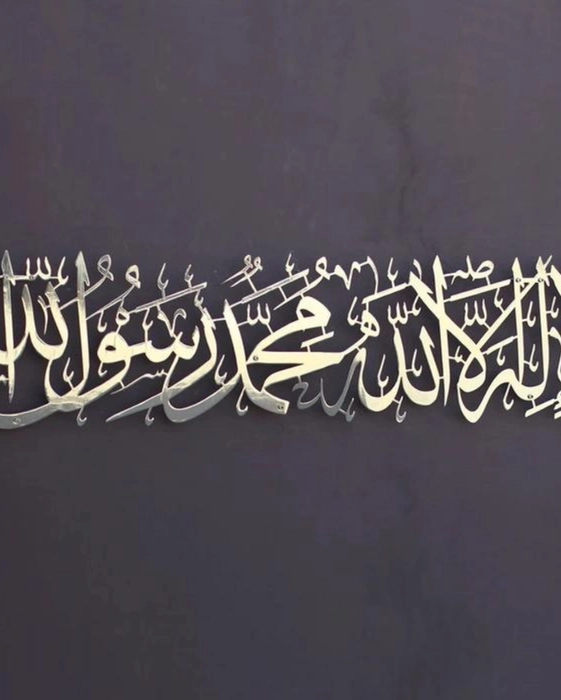 إله إلا الله محمد رسول الله